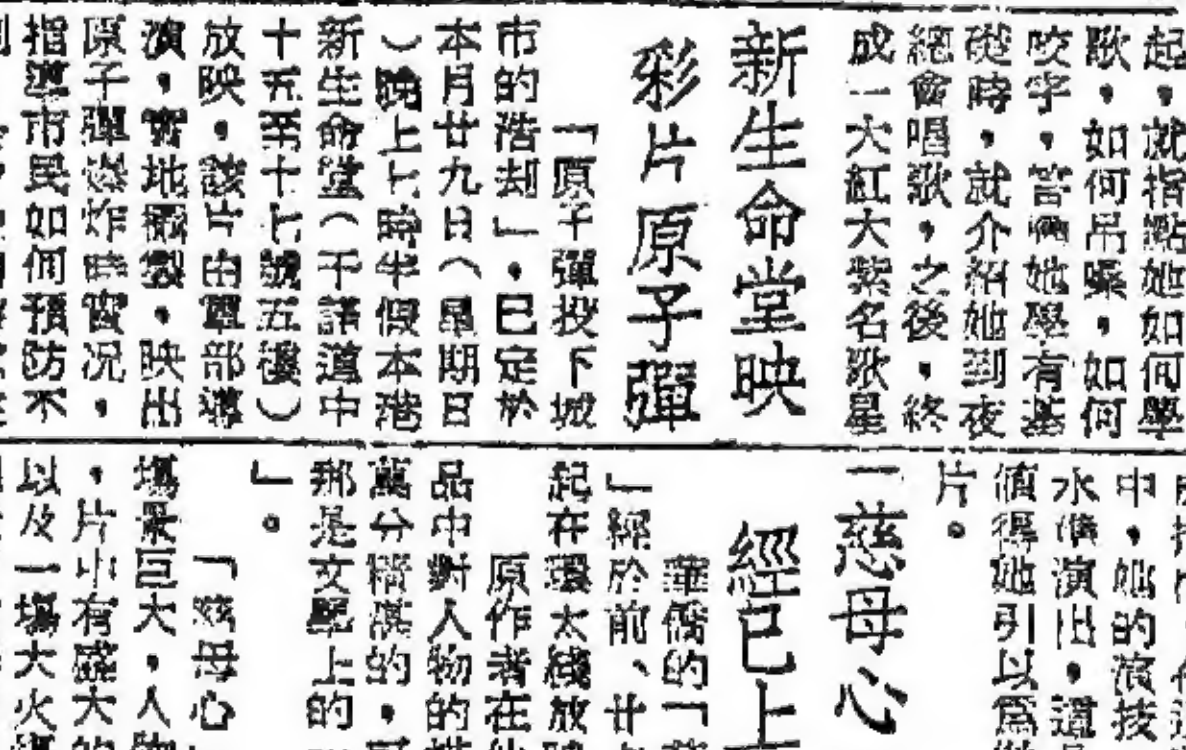 起，就指點她如何學
歌，如何吊嗓，如何
咬字，等她學有基
從時，就介紹她到夜
總會唱歌，之後，終
成一大紅大紫名歌星
新生命堂映
彩片原子彈
「原子彈投下城
市的浩刼」，已定於
本月廿九日（星期日
）晚上七時半假本港
新生命堂（干諾道中
十五至十七號五樓）
放映，該片由軍部導
演，實地攝製，映出
原子彈爆炸時實况，
指導市民如何預防不
中，她的演技
水準演出，這
值得她引以爲
片。
一慈母心
經已上
華僑的「
」經於前、廿
起在環太綫放映
原作者在他
品中對人物的描
萬分精湛的，
那是文壐上的
」。
「慈母心
塲景巨大，人物
，片中有盛大的
以及一塲大火